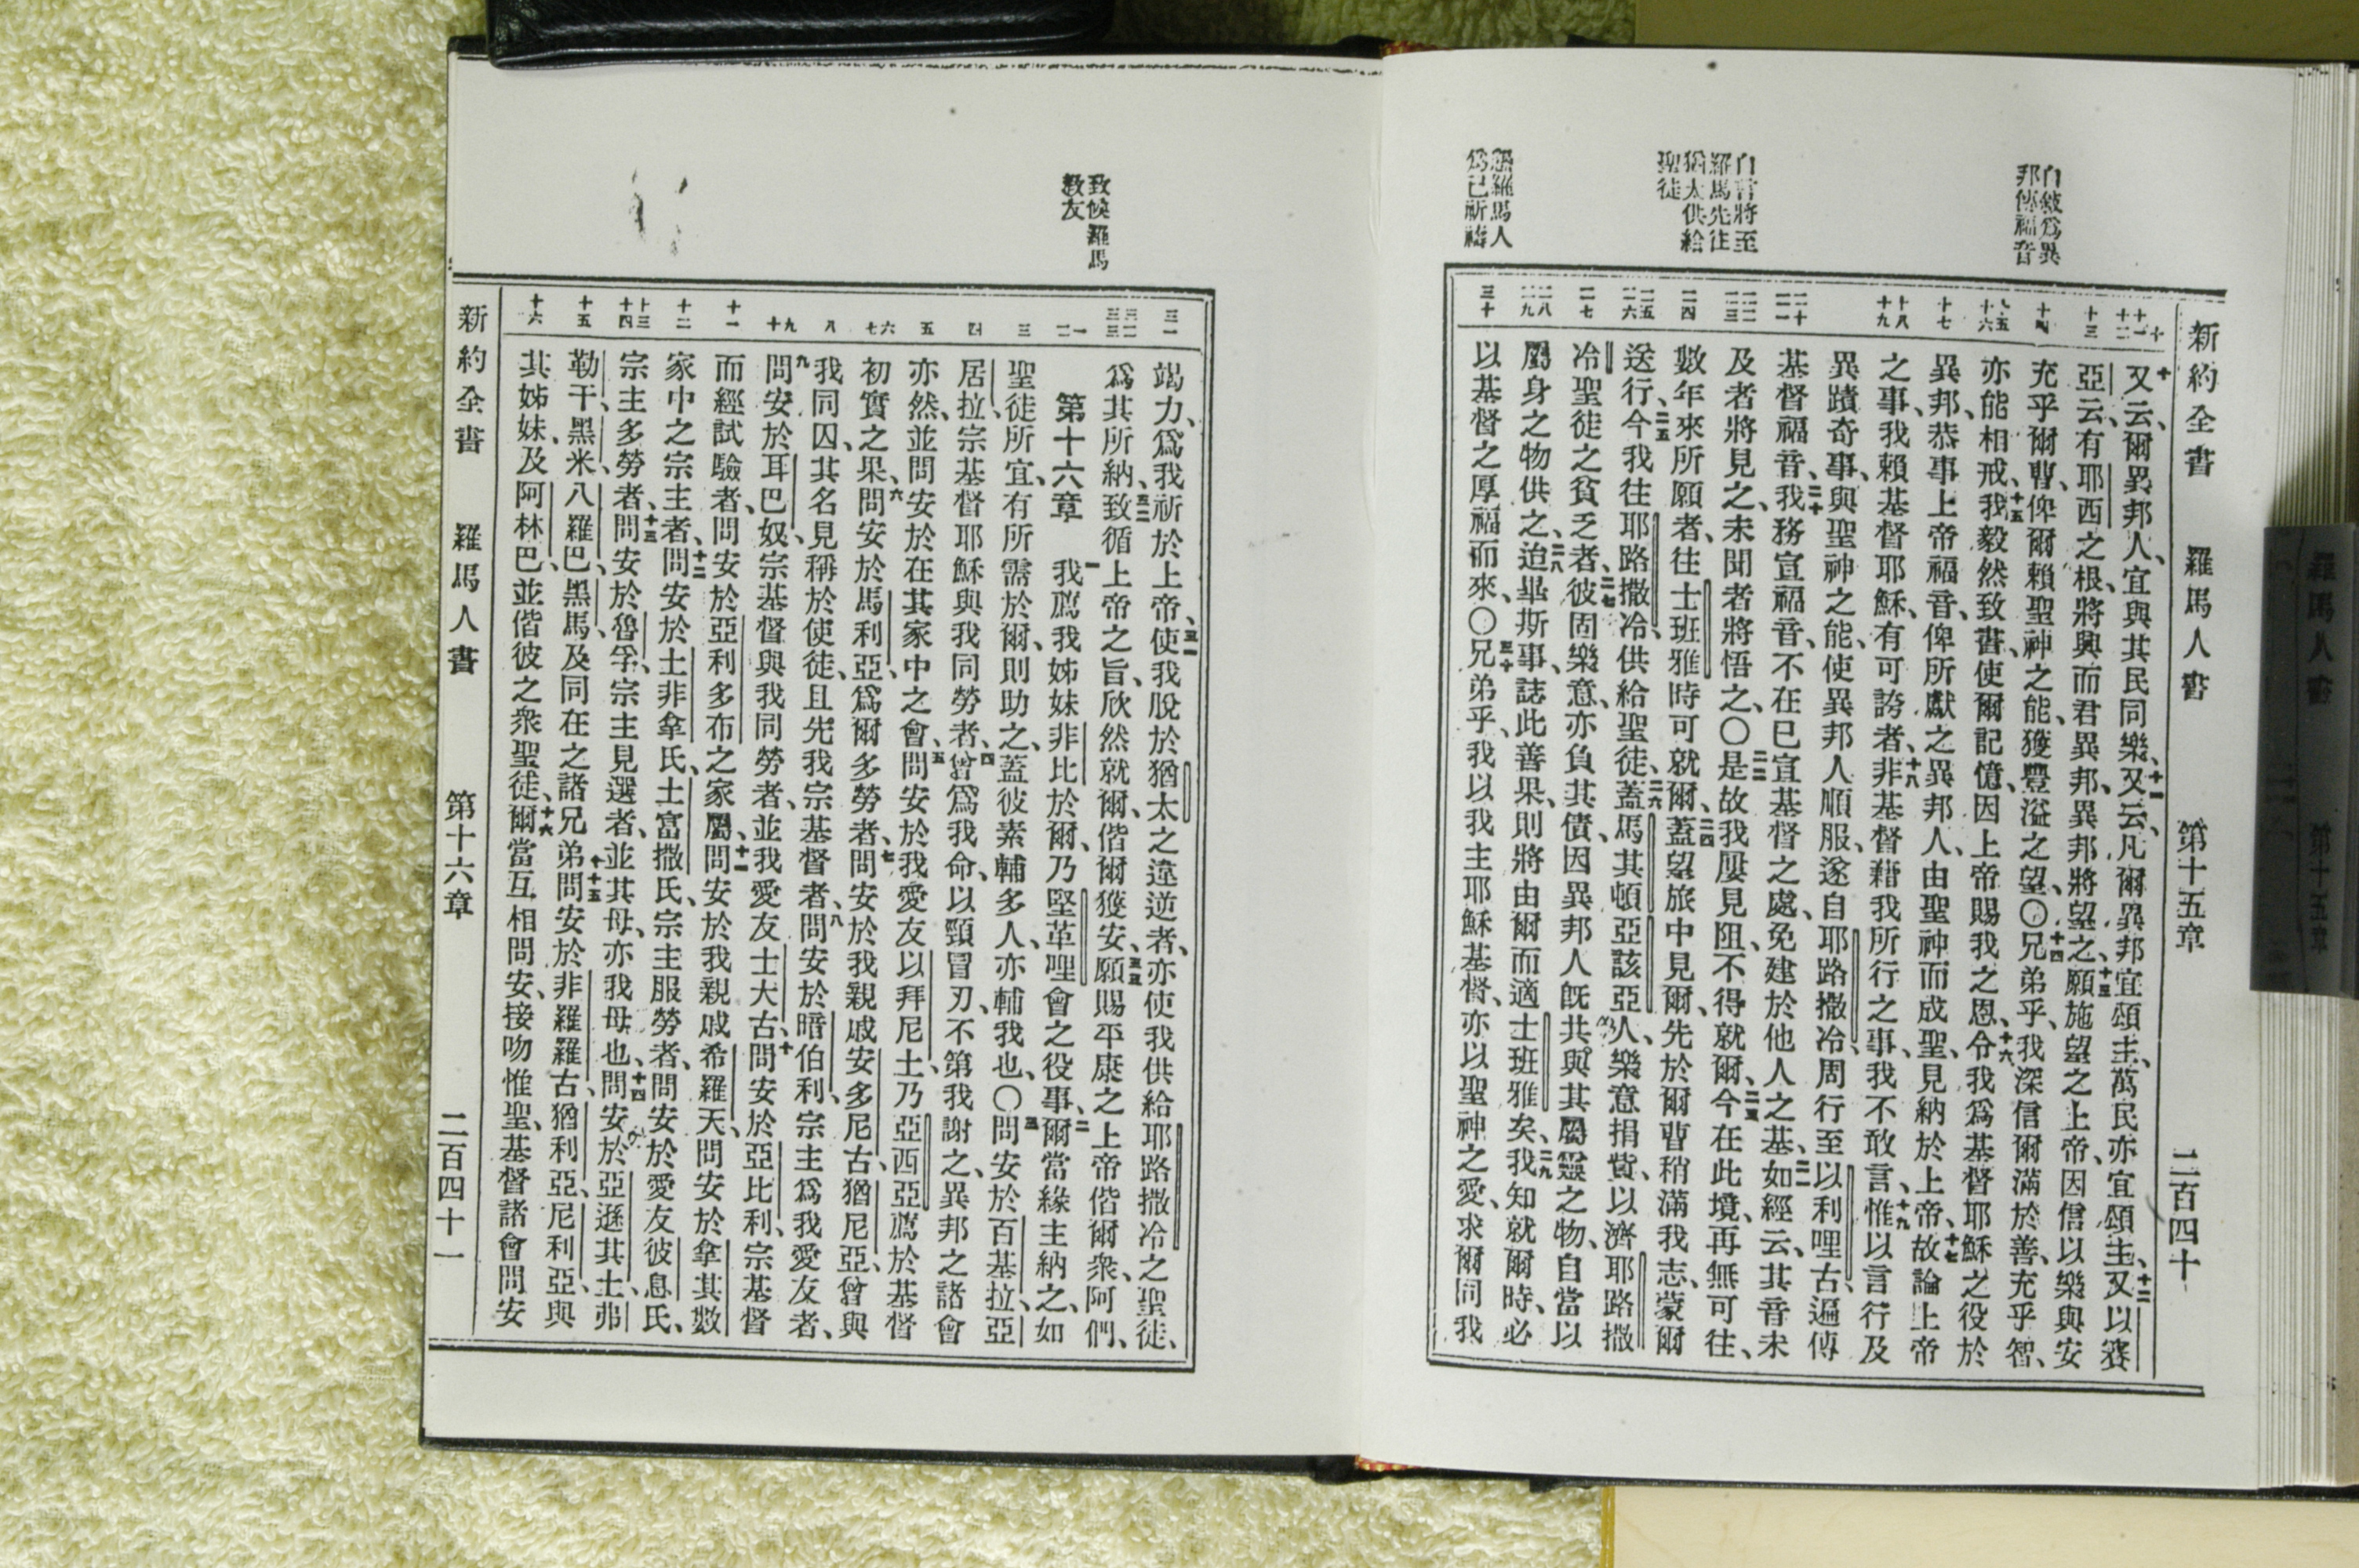 新約全書 羅馬人書 第十五章 二百四十
自敘爲異
邦傳福音
自言將至
羅馬先往
猶太供給
聖徒
懇羅馬人
爲己祈禱
十又云、爾異邦人、宜與其民同樂、十一又云、凡爾異邦宜頌主、萬民亦宜頌主、十二又以賽
亞云、有耶西之根、將興而君異邦、異邦將望之、十三願施望之上帝、因信以樂與安
充乎爾曹、俾爾賴聖神之能、獲豐溢之望、〇十四兄弟乎、我深信爾滿於善、充乎智、
亦能相戒、十五我毅然致書、使爾記憶、因上帝賜我之恩、十六令我爲基督耶穌之役於
異邦、恭事上帝福音、俾所獻之異邦人、由聖神而成聖、見納於上帝、十七故論上帝
之事、我賴基督耶穌、有可誇者、十八非基督藉我所行之事、我不敢言、十九惟以言行及
異蹟奇事、與聖神之能、使異邦人順服、遂自耶路撒冷、周行至以利哩古、遍傳
基督福音、二十我務宣福音、不在已宣基督之處、免建於他人之基、二一如經云、其音未
及者將見之、未聞者將悟之、〇二二是故我屢見阻、不得就爾、二三今在此境、再無可往、
數年來所願者、往士班雅時可就爾、二四蓋望旅中見爾、先於爾曹稍滿我志、蒙爾
送行、二五今我往耶路撒冷、供給聖徒、二六蓋馬其頓亞該亞人、樂意捐貲、以濟耶路撒
冷聖徒之貧乏者、二七彼固樂意、亦負其債、因異邦人旣共與其屬靈之物、自當以
屬身之物供之、二八迨畢斯事、誌此善果、則將由爾而適士班雅矣、二九我知就爾時、必
以基督之厚福而來、〇三十兄弟乎、我以我主耶穌基督、亦以聖神之愛、求爾同我
致候羅馬
教友
竭力、爲我祈於上帝、三一使我脫於猶太之違逆者、亦使我供給耶路撒冷之聖徒、
爲其所納、三二致循上帝之旨、欣然就爾、偕爾獲安、三三願賜平康之上帝偕爾衆、阿們、
第十六章 一我薦我姊妹非比於爾、乃堅革哩會之役事、二爾當緣主納之、如
聖徒所宜、有所需於爾、則助之、蓋彼素輔多人、亦輔我也、〇三問安於百基拉、亞
居拉、宗基督耶穌與我同勞者、四曾爲我命、以頸冒刃、不第我謝之、異邦之諸會
亦然、並問安於在其家中之會、五問安於我愛友以拜尼土、乃亞西亞薦於基督
初實之果、六問安於馬利亞、爲爾多勞者、七問安於我親戚安多尼古、猶尼亞、曾與
我同囚、其名見稱於使徒、且先我宗基督者、八問安於暗伯利、宗主爲我愛友者、
九問安於耳巴奴、宗基督與我同勞者、並我愛友士大古、十問安於亞比利、宗基督
而經試驗者、問安於亞利多布之家屬、十一問安於我親戚希羅天、問安於拿其數
家中之宗主者、十二問安於士非拿氏、士富撒氏、宗主服勞者、問安於愛友彼息氏、
宗主多勞者、十三問安於魯孚、宗主見選者、並其母、亦我母也、十四問安於亞遜其土、弗
勒干、黑米、八羅巴、黑馬、及同在之諸兄弟、十五問安於非羅羅古、猶利亞、尼利亞、與
其姊妹、及阿林巴、並偕彼之衆聖徒、十六爾當互相問安、接吻惟聖、基督諸會問安
新約全書 羅馬人書 第十六章 二百四十一